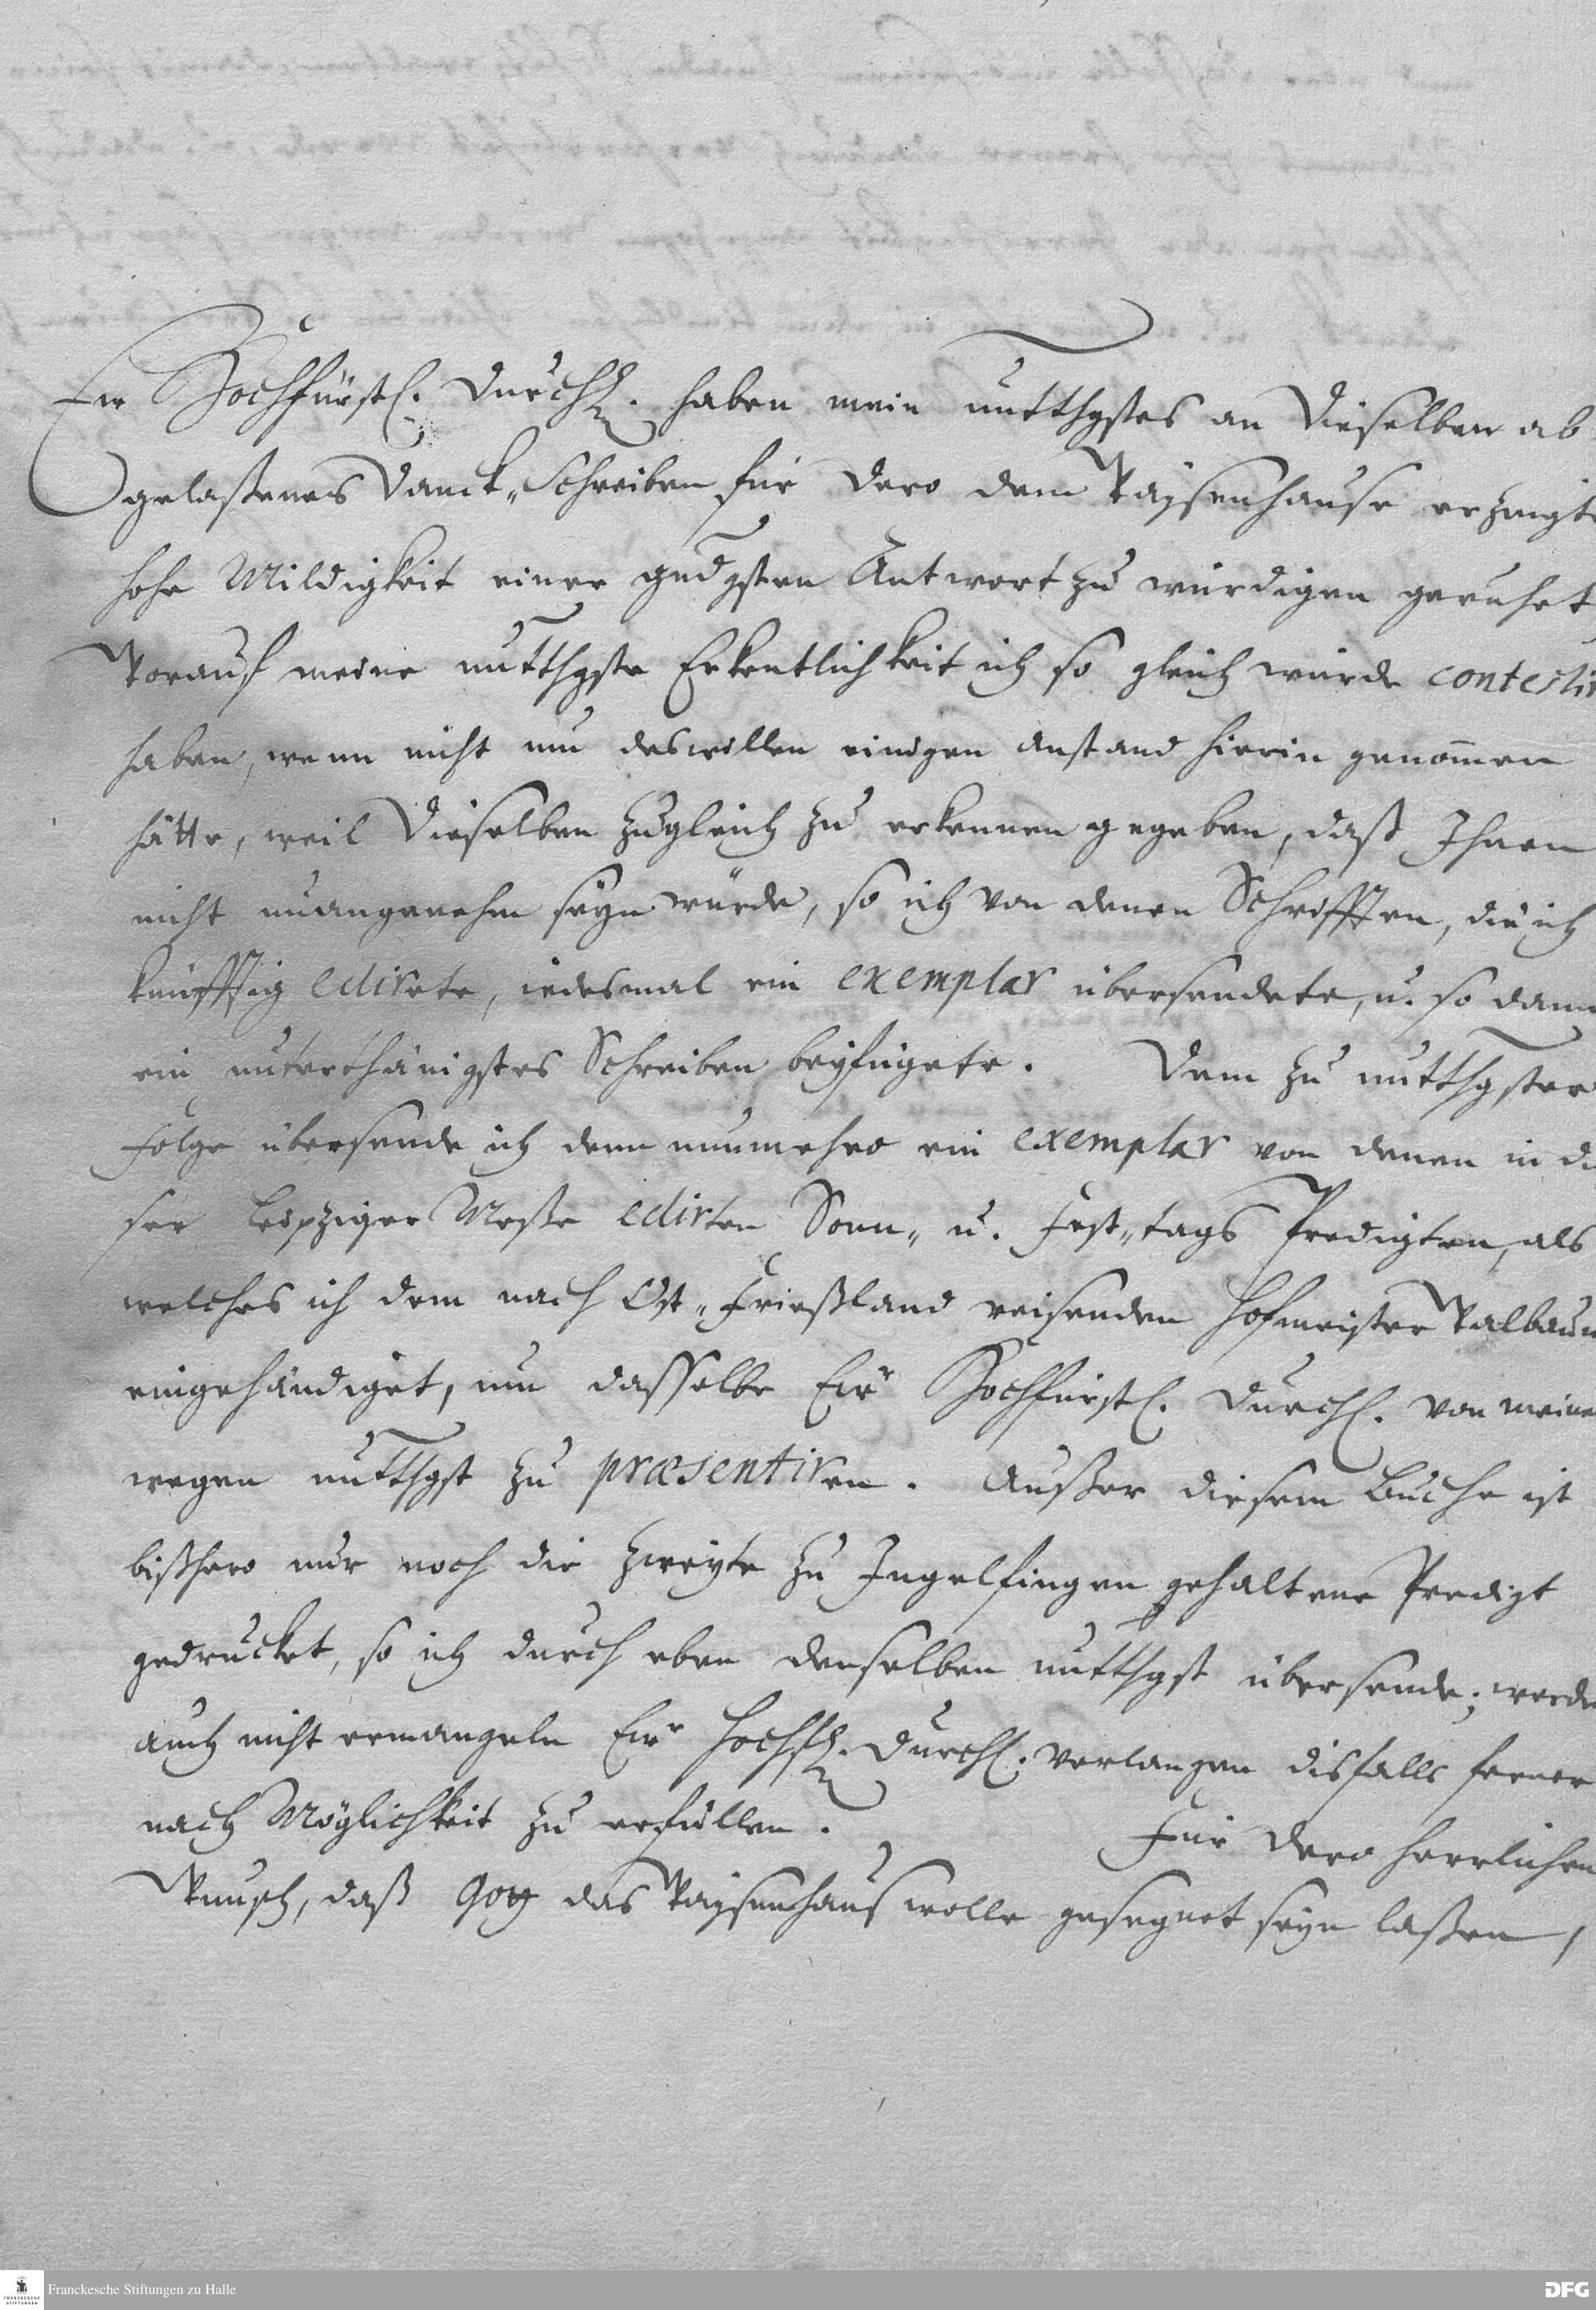 Ew Hochfürstl. Durchl. haben mein untthgstes an Dieselben ab
gelaßenes Danck-Schreiben für Dero dem Waysenhause erzeigte
hohe Mildigkeit einer gndgsten Antwort zu würdigen geruhet
Worauf meine untthgste Erkentlichkeit ich so gleich würde contestir
haben, wenn nicht um deswillen einigen anstand hierin genom̃en
hätte, weil Dieselben zugleich zu erkennen gegeben, daß Ihnen
nicht unangenehm seyn würde, so ich von denen Schrifften, die ich
künfftig edirete, iedesmal ein exemplar übersendete, u. so dann
ein unterthänigstes Schreiben beyfügete. Dem zu untthgster
Folge übersende ich denn nunmehro ein exemplar von denen in die
ser Leipziger Meße edirten Sonn- u. Fest-tags Predigten, als
welches ich dem nach Ost-Frießland reisenden Hofmeister Walbaum
eingehändiget, um dasselbe Ewr Hochfürstl. Durchl. von meinet
wegen untthgst zu præsentiren. Außer diesem Buche ist
bißhero nur noch die zweyte zu Ingelfingen gehaltene Predigt
gedrucket, so ich durch eben denselben untthgst übersende; werde
auch nicht ermangeln Ewr Hochfl. Durchl. Verlangen disfalls ferner
nach Möglichkeit zu erfüllen. Für Dero herrlichen
Wunsch, daß Gott das Waysenhaus wolle gesegnet seyn laßen,
Franckesche Stiftungen zu Halle
FRANCKESCHE STIFTUNGEN
DFG